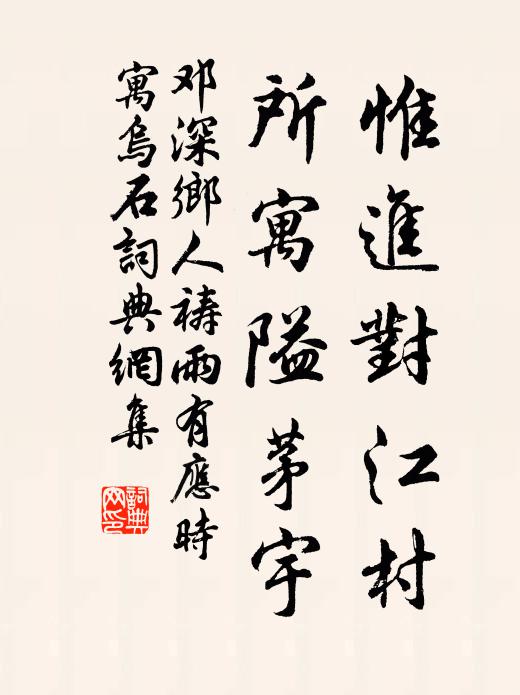 惟進對江村
所寓隘茅宇
邓深鄉人禱雨有應時
寓烏石詞典網集
詞典網印